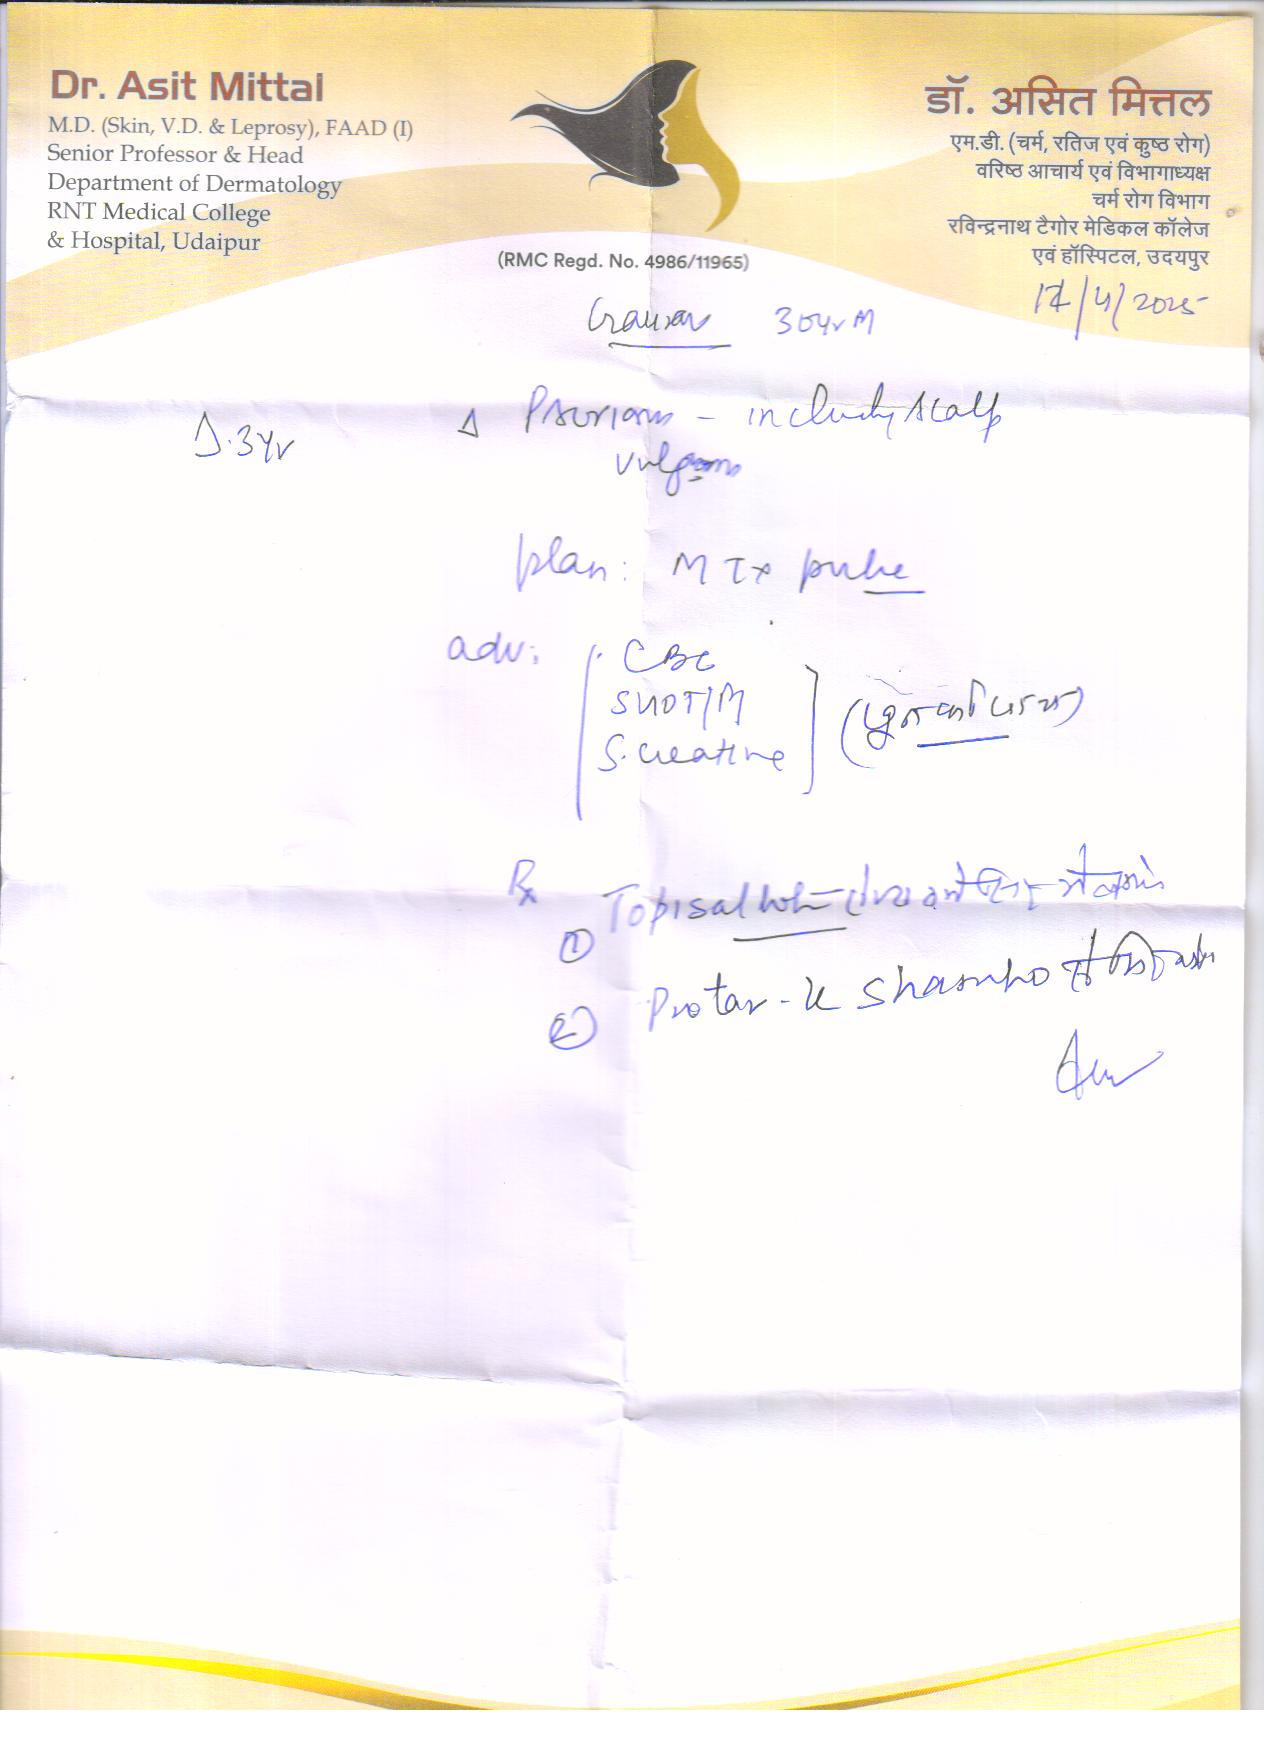 Dr. Asit Mittal
M.D. (Skin, V.D. & Leprosy), FAAD (I)
Senior Professor & Head
Department of Dermatology
RNT Medical College
& Hospital, Udaipur
(RMC Regd. No. 4986/11965)
डॉ. असित मित्तल
एम.डी. (चर्म, रतिज एवं कुष्ठ रोग)
वरिष्ठ आचार्य एवं विभागाध्यक्ष
चर्म रोग विभाग
रविन्द्रनाथ टैगोर मेडिकल कॉलेज
एवं हॉस्पिटल, उदयपुर
/4/2025
30yr M
3yr
Δ Psoriasis - including scalp
vulgaris
plan: MTx pulse
adv:
CBC
SGOT/PT
S. creatine
Rx
① Topisal
② Protar-K Shampoo से